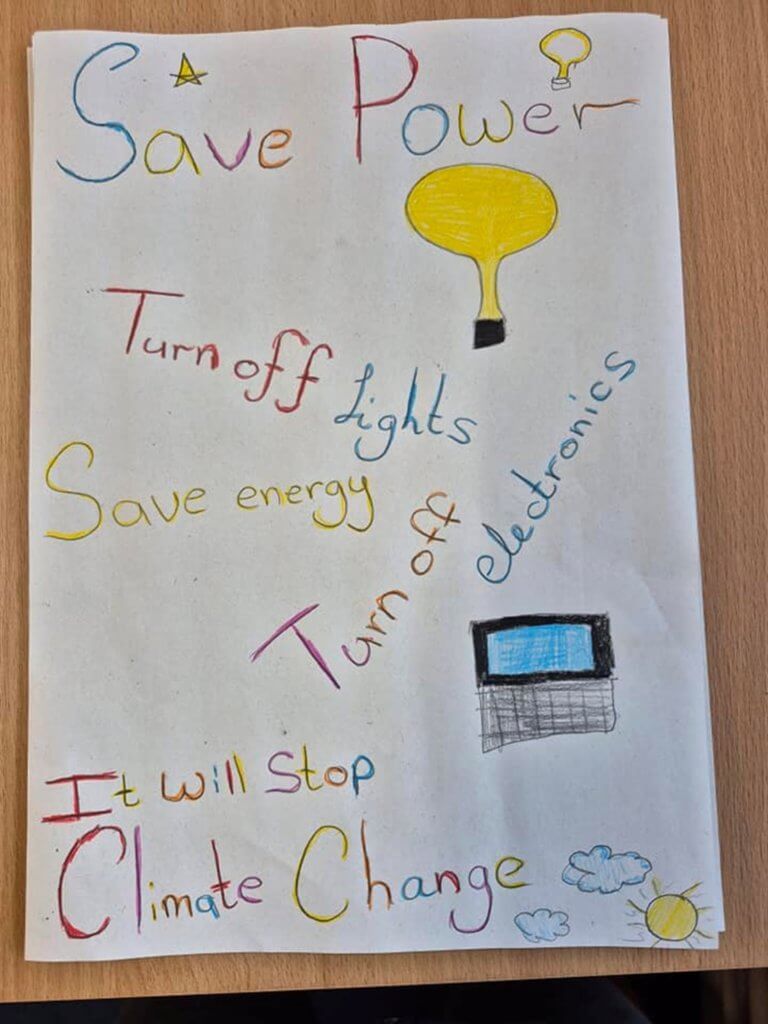 Save Power
Turn off Lights
Save energy
Turn off electronics
It will Stop
Climate Change